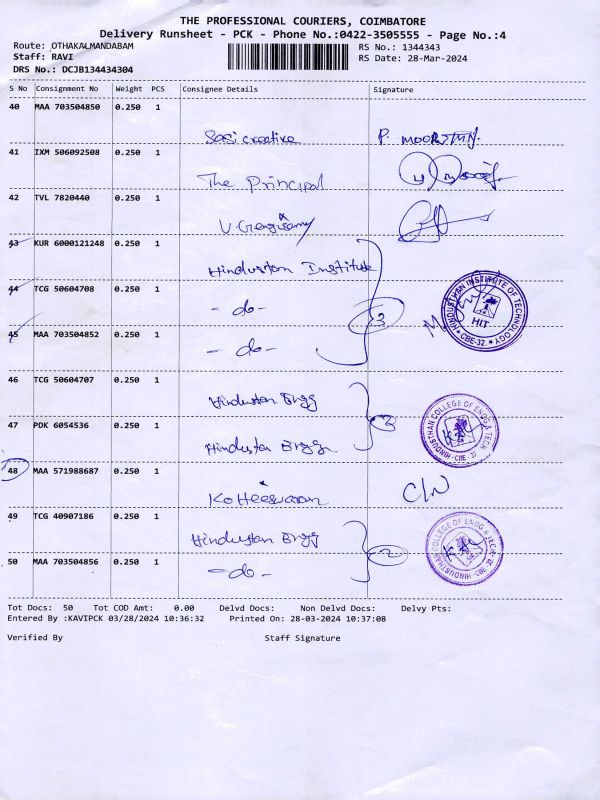 THE PROFESSIONAL COURIERS, COIMBATORE
Delivery Runsheet - PCK - Phone No.:0422-3505555 - Page No.:4
Route: OTHAKALMANDABAM
RS No.: 1344343
Staff: RAVI
RS Date: 28-Mar-2024
DRS No.: DCJB134434304
S No Consignment No Weight PCS Consignee Details Signature
40 MAA 703504850 0.250 1
Sasi creative P.
41 IXM 506092508 0.250 1
The Principal
42 TVL 7820440 0.250 1
43 KUR 6000121248 0.250 1
Hindustan Institute
44 TCG 50604708 0.250 1
- do -
3
HINDUSTHAN INSTITUTE OF TECHNOLOGY
HIT
* CBE-32. *
45 MAA 703504852 0.250 1
- do -
46 TCG 50604707 0.250 1
Hindustan Engg
47 PDK 6054536 0.250 1
Hindustan Engg
48 MAA 571988687 0.250 1
C/N
49 TCG 40907186 0.250 1
Hindustan Engg
2
50 MAA 703504856 0.250 1
- do -
Tot Docs: 50 Tot COD Amt: 0.00 Delvd Docs: Non Delvd Docs: Delvy Pts:
Entered By :KAVIPCK 03/28/2024 10:36:32 Printed On: 28-03-2024 10:37:08
Verified By Staff Signature